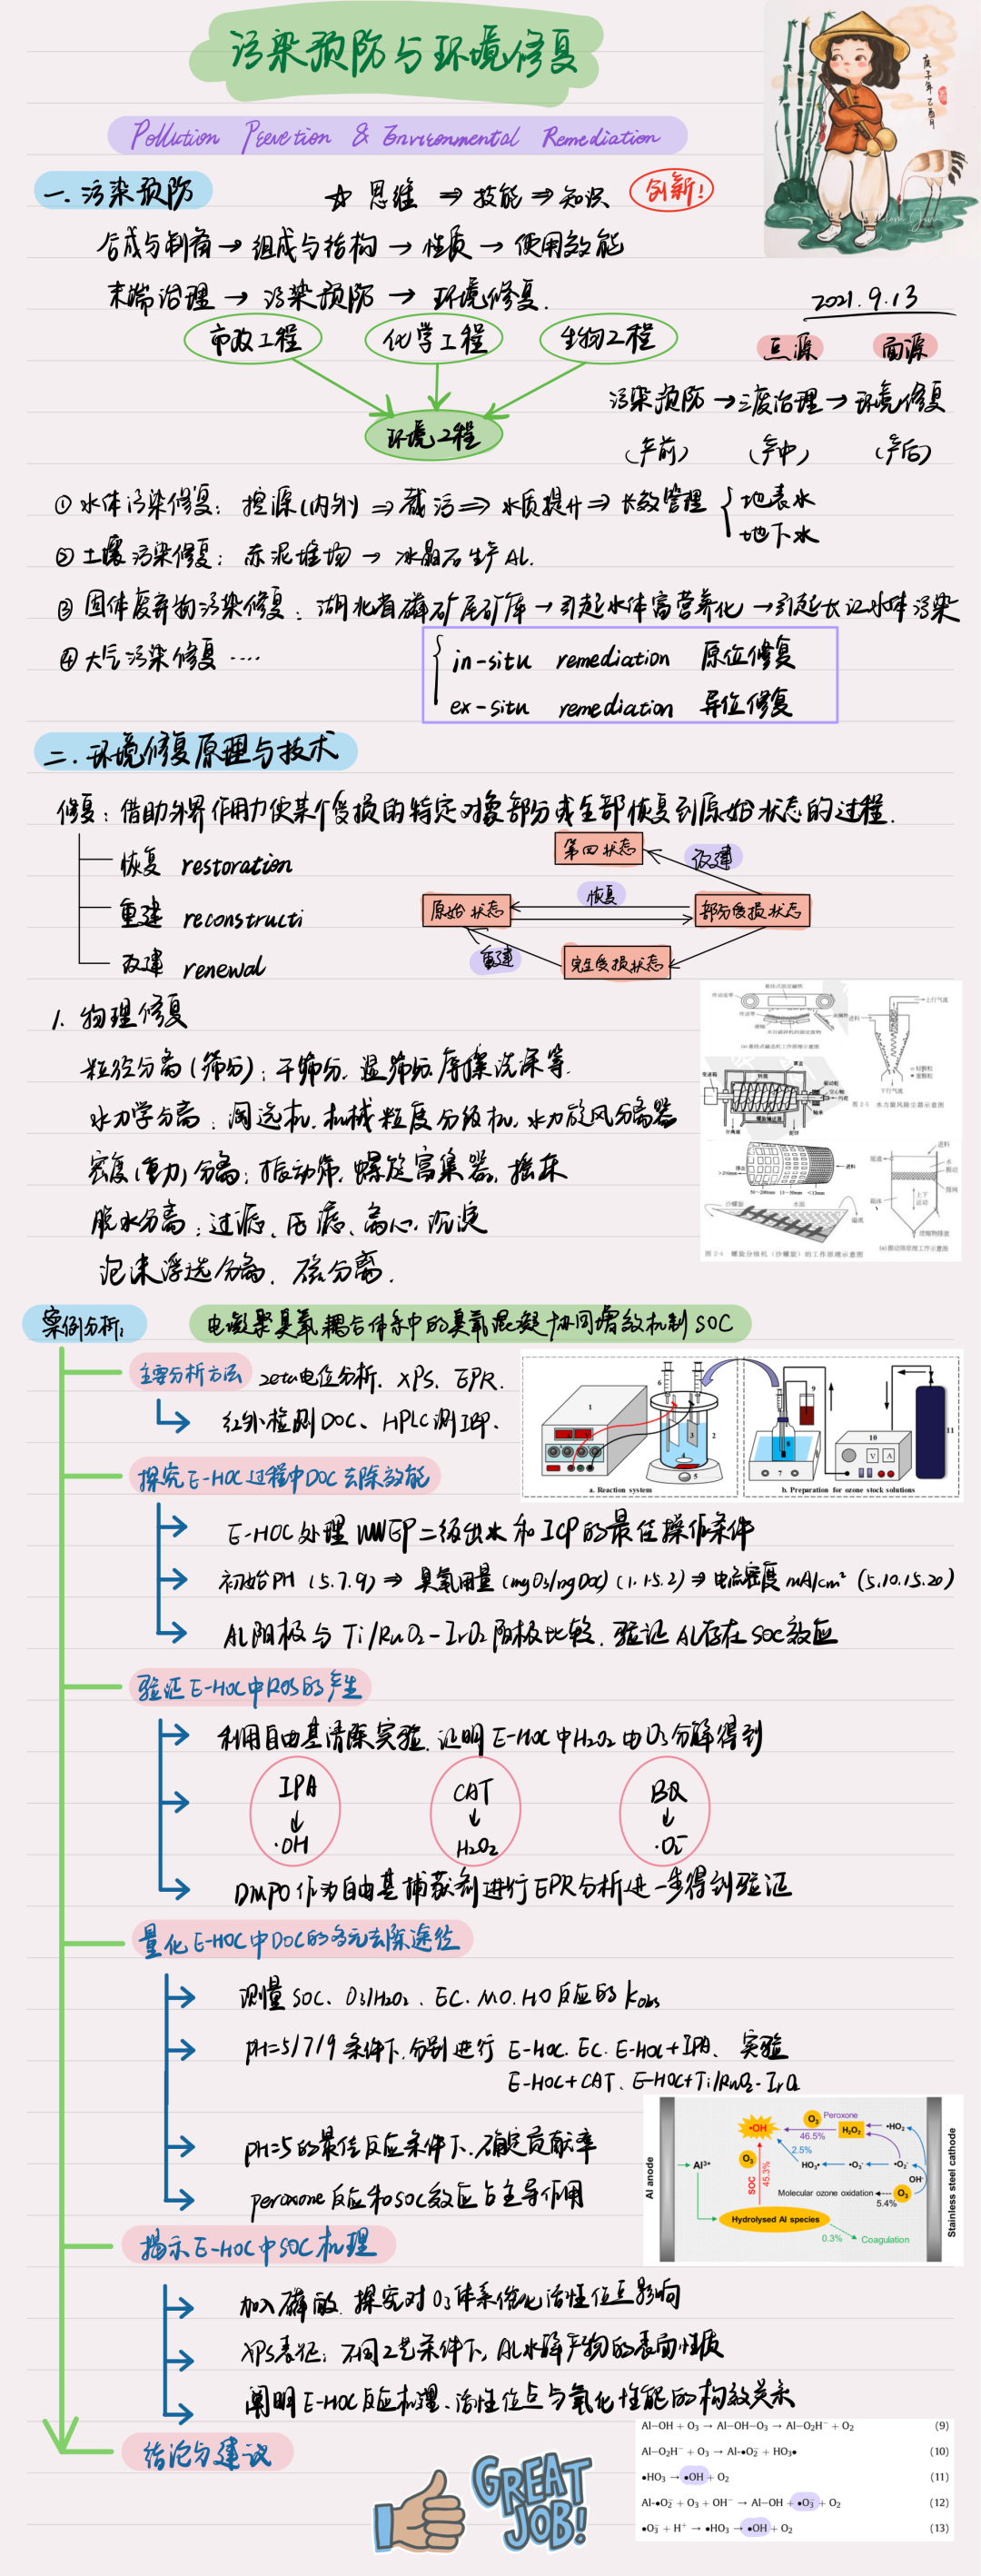 污染预防与环境修复
Pollution Prevetion & Environmental Remediation
庚子年乙酉月
一.污染预防
☆ 思维 ⇒ 技能 ⇒ 知识 创新!
合成与制备 → 组成与结构 → 性质 → 使用效能
末端治理 → 污染预防 → 环境修复.
2021.9.13
市政工程 化学工程 生物工程
环境工程
点源 面源
污染预防 → 三废治理 → 环境修复
(产前) (产中) (产后)
① 水体污染修复: 控源(内外) ⇒ 截污 ⇒ 水质提升 ⇒ 长效管理 { 地表水
地下水
② 土壤污染修复: 赤泥堆场 → 冰晶石生产AL.
③ 固体废弃物污染修复: 湖北省磷矿尾矿库 → 引起水体富营养化 → 引起长江水体污染
④ 大气污染修复 ····
in-situ remediation 原位修复
ex-situ remediation 异位修复
二.环境修复原理与技术
修复: 借助外界作用力使某个受损的特定对象部分或全部恢复到原始状态的过程.
恢复 restoration
重建 reconstructi
改建 renewal
第四状态 改建
原始状态 恢复 部分受损状态
重建 完全受损状态
1. 物理修复
粒径分离(筛分): 干筛分. 湿筛分. 摩擦洗涤等.
水力学分离: 淘选机. 机械粒度分级机. 水力旋风分离器
密度(重力)分离: 振动筛. 螺旋富集器. 摇床
脱水分离: 过滤、压滤、离心、沉淀
泡沫浮选分离. 磁分离.
图 2-5 水力旋风除尘器示意图
图 2-4 螺旋分级机(沙螺旋)的工作原理示意图
案例分析:
电凝聚臭氧耦合体系中的臭氧混凝协同增效机制 SOC
主要分析方法 zeta电位分析、XPS、EPR.
红外检测DOC、HPLC测IBP.
a. Reaction system
b. Preparation for ozone stock solutions
探究E-HOC过程中DOC去除效能
E-HOC处理WWTP二级出水和ICP的最佳操作条件
初始PH (5.7.9) ⇒ 臭氧用量(mgO3/mgDOC) (1.1.5.2) ⇒ 电流密度 mA/cm² (5.10.15.20)
AL阳极与Ti/RuO2-IrO2阳极比较. 验证AL存在SOC效应
验证E-HOC中ROS的产生
利用自由基清除实验. 证明E-HOC中H2O2由O3分解得到
IPA CAT BQ
↓ ↓ ↓
·OH H2O2 ·O2⁻
DMPO作为自由基捕获剂进行EPR分析进一步得到验证
量化E-HOC中DOC的多元去除途径
测量SOC、O3/H2O2、EC、MO、HO反应的Kobs
PH=5/7/9条件下.分别进行 E-HOC. EC. E-HOC+IPA、 实验
E-HOC+CAT、E-HOC+Ti/RuO2-IrO2
PH=5的最佳反应条件下.确定贡献率
peroxone反应和SOC效应占主导作用
Al anode
Al³⁺
•OH
O₃ Peroxone
46.5%
H₂O₂
•HO₂
2.5%
HO₃• •O₃⁻ •O₂⁻
OH⁻
O₃
SOC
45.3%
Molecular ozone oxidation
O₃
5.4%
Hydrolysed Al species
0.3% Coagulation
Stainless steel cathode
揭示E-HOC中SOC机理
加入磷酸. 探究对O3体系催化活性位点影响
XPS表征: 不同工艺条件下, AL水解产物的表面性质
阐明E-HOC反应机理、活性位点与氧化性能的构效关系
结论与建议
GREAT JOB!
Al−OH + O₃ → Al−OH−O₃ → Al−O₂H⁻ + O₂ (9)
Al−O₂H⁻ + O₃ → Al-•O₂⁻ + HO₃• (10)
•HO₃ → •OH + O₂ (11)
Al-•O₂⁻ + O₃ + OH⁻ → Al−OH + •O₃⁻ + O₂ (12)
•O₃⁻ + H⁺ → •HO₃ → •OH + O₂ (13)